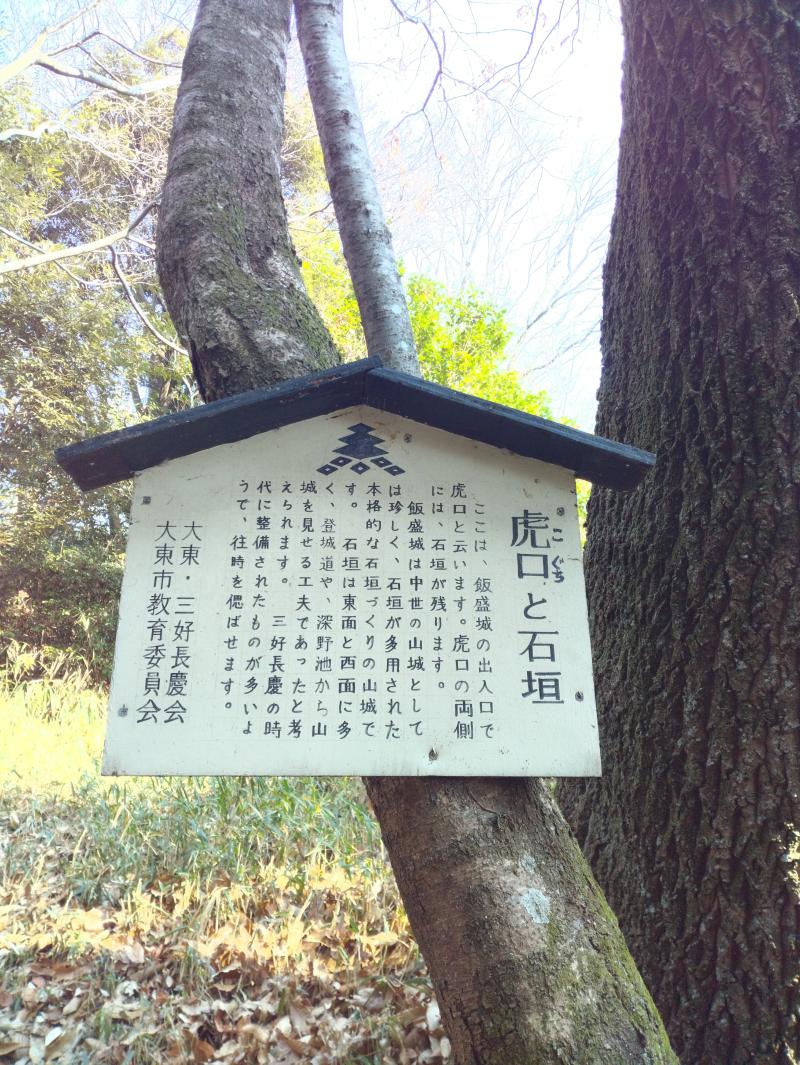 虎口と石垣
こぐち
ここは、飯盛城の出入口で
虎口と云います。虎口の両側
には、石垣が残ります。
飯盛城は中世の山城として
は珍しく、石垣が多用された
本格的な石垣づくりの山城で
す。　石垣は東面と西面に多
く、登城道や、深野池から山
城を見せる工夫であったと考
えられます。　三好長慶の時
代に整備されたものが多いよ
うで、往時を偲ばせます。
大東・三好長慶会
大東市教育委員会